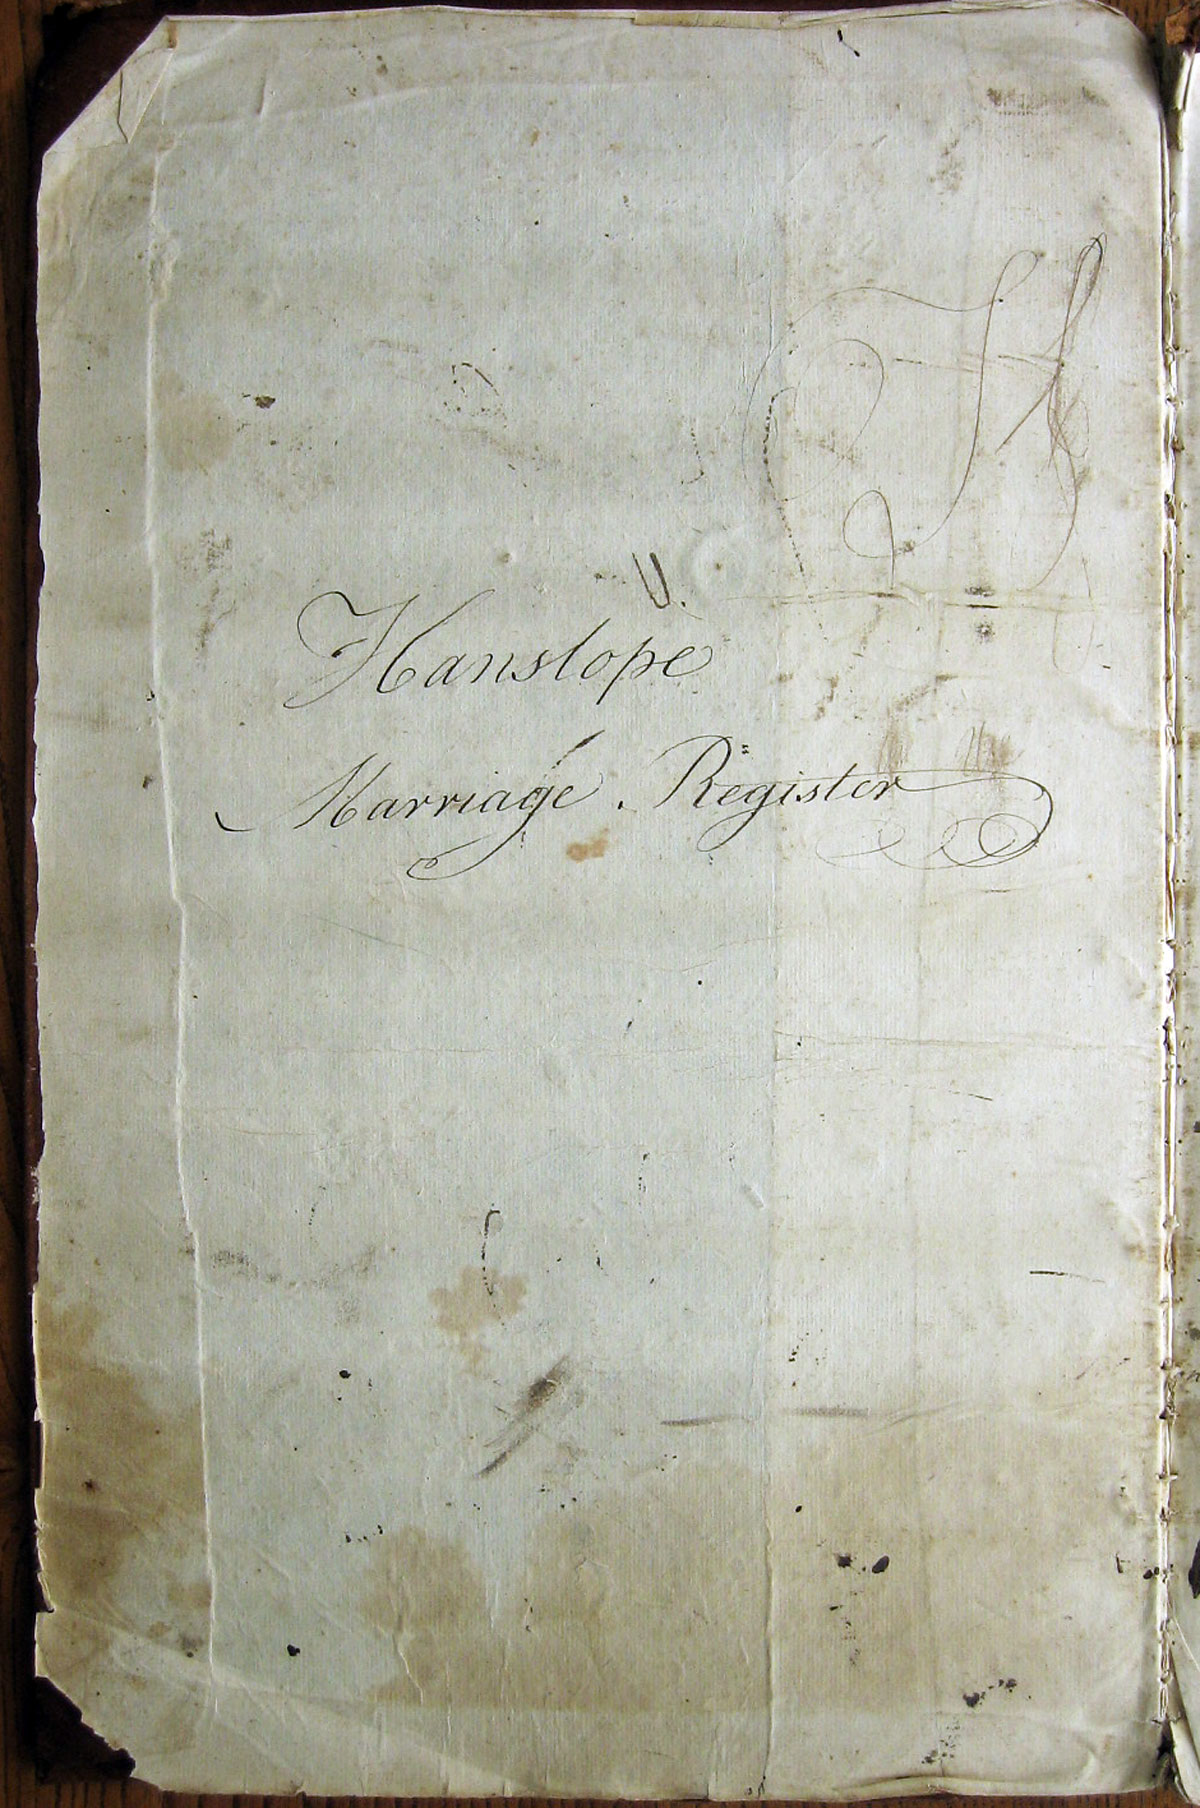 Hanslope
Marriage. Register